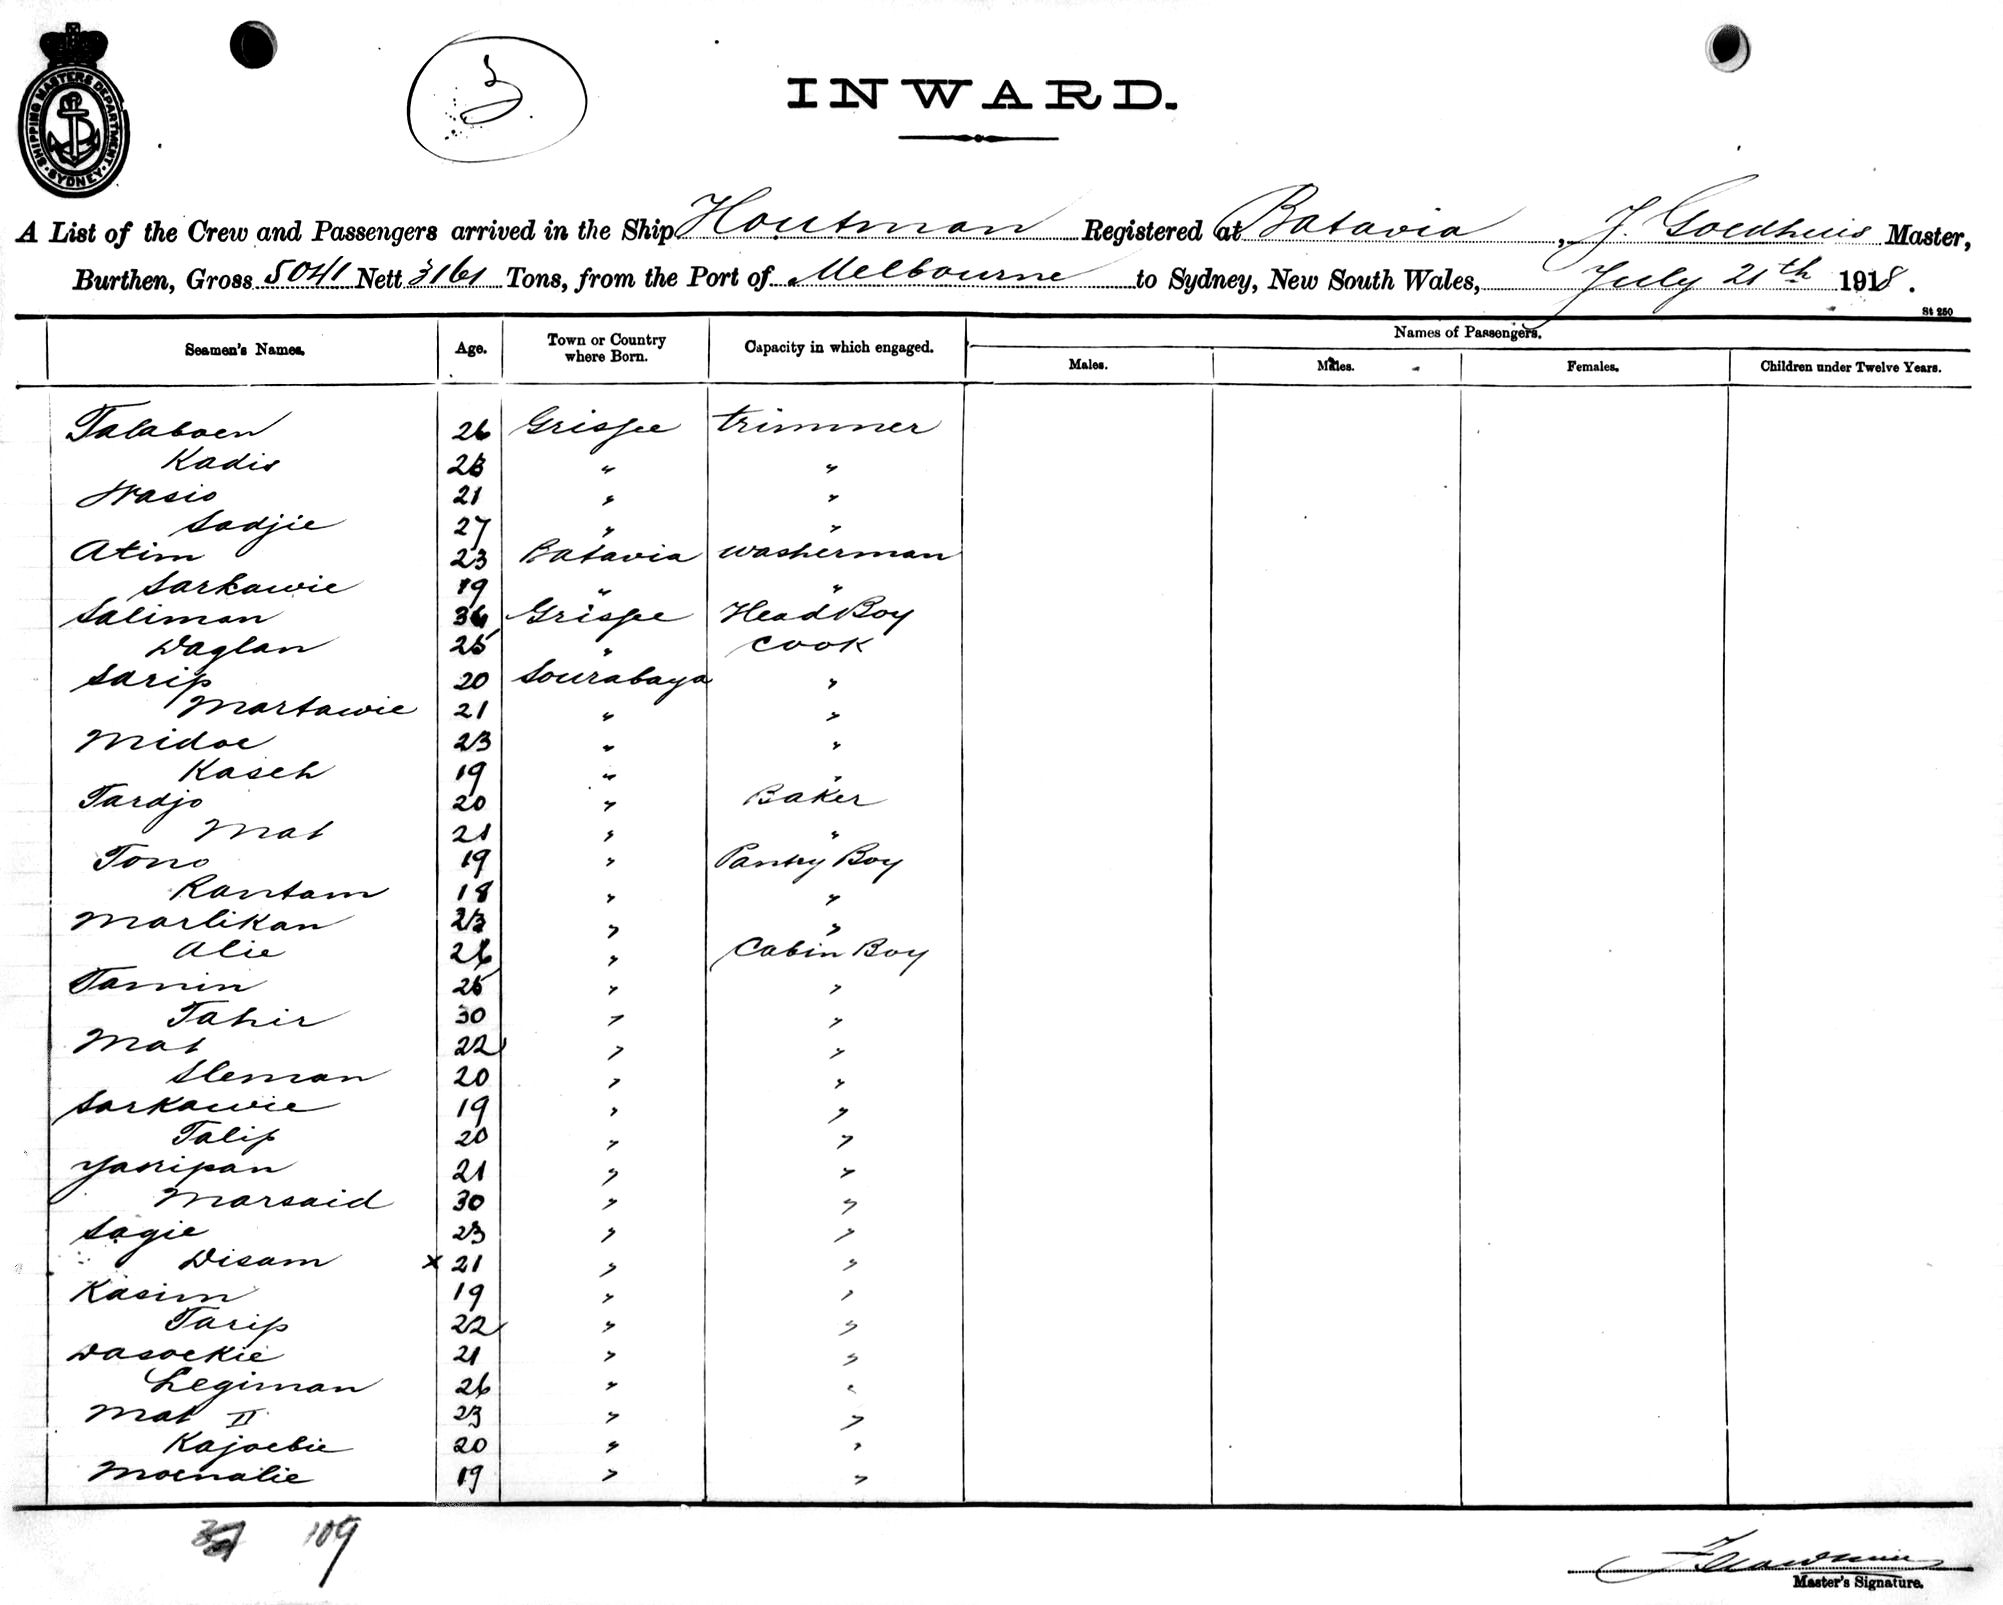 SHIPPING MASTERS DEPARTMENT · SYDNEY ·
3
INWARD.
A List of the Crew and Passengers arrived in the Ship Houtman Registered at Batavia, J. Goedhuis Master,
Burthen, Gross 5041 Nett 3161 Tons, from the Port of Melbourne to Sydney, New South Wales, July 21th 1918.
St 250
Seamen's Names. Age. Town or Country where Born. Capacity in which engaged. Names of Passengers.
Males. Males. Females. Children under Twelve Years.
Talaboen 26 Grissee trimmer
Kadis 23 " "
Wasio 21 " "
Sadjie 27 " "
Atim 23 Batavia washerman
Sarkawie 19 " "
Saliman 36 Grissee Head Boy
Daglan 25 " Cook
Sarip 20 Sourabaya "
Martawie 21 " "
Midoe 23 " "
Kaseh 19 " "
Tardjo 20 " Baker
Mat 21 " "
Tono 19 " Pantry Boy
Rantam 18 " "
Marlikan 23 " "
Alie 26 " Cabin Boy
Tamin 25 " "
Tahir 30 " "
Mat 22 " "
Sleman 20 " "
Sarkawie 19 " "
Talip 20 " "
Jasripan 21 " "
Marsaid 30 " "
Sagie 23 " "
Disam x 21 " "
Kasim 19 " "
Tarip 22 " "
Dasoekie 21 " "
Legiman 26 " "
Mat II 23 " "
Kajoebie 20 " "
Moenalie 19 " "
109
Master's Signature.